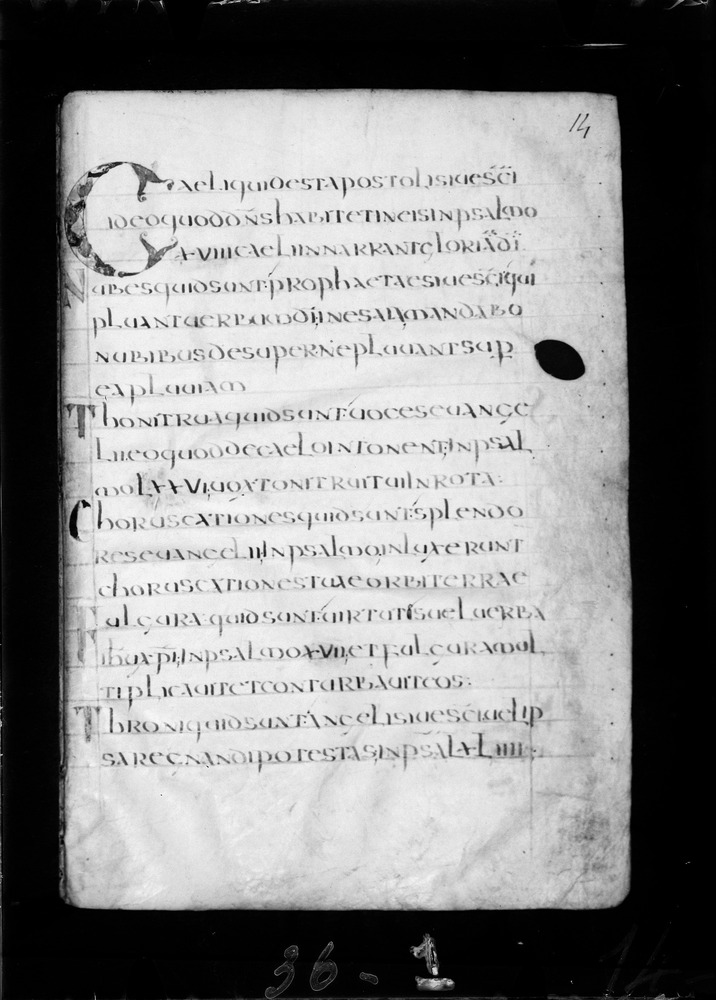 14
Caeli quid est apostoli siue sc̄i
ideo quod dn̄s habitet in eis in psalmo
XVIII caeli innarrant gloria d̄i
Nubes quid sunt prophaetae siue sc̄i qui
pluant uerbum d̄i in esaia mandabo
nubibus desuper ne pluuant sup̄
ea pluuiam
Thonitrua quid sunt uoces euange
lii eo quod de caelo intonent in psal
mo LXXVI uox tonitrui tui in rota:
Choruscationes quid sunt splendo
res euangelii in psalmo inluxerunt
choruscationes tuae orbi terrae
Fulgura quid sunt uirtutis uel uerba
in psalmo XVII et fulgura mul
tiplicauit et conturbauit eos:
Throni quid sunt angeli siue sc̄i uel ip
sa regnandi potestas in psal XLIIII
36-1